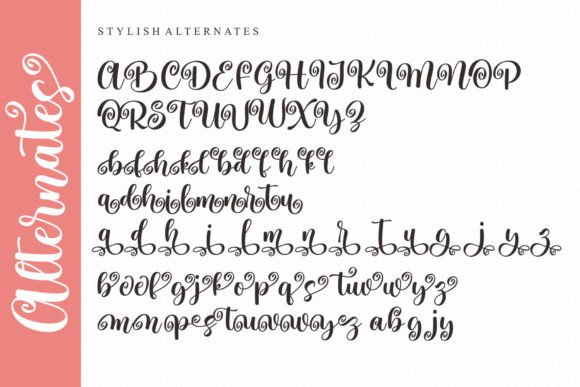 Alternates
STYLISH ALTERNATES
ABCDEFGHIJKLMNOP
QRSTUVWXYZ
bdfhklbdfhkl
adhilmnrtu
a d h i l m n r t u g j y z
gjkopqs tuvwyz
abgjy